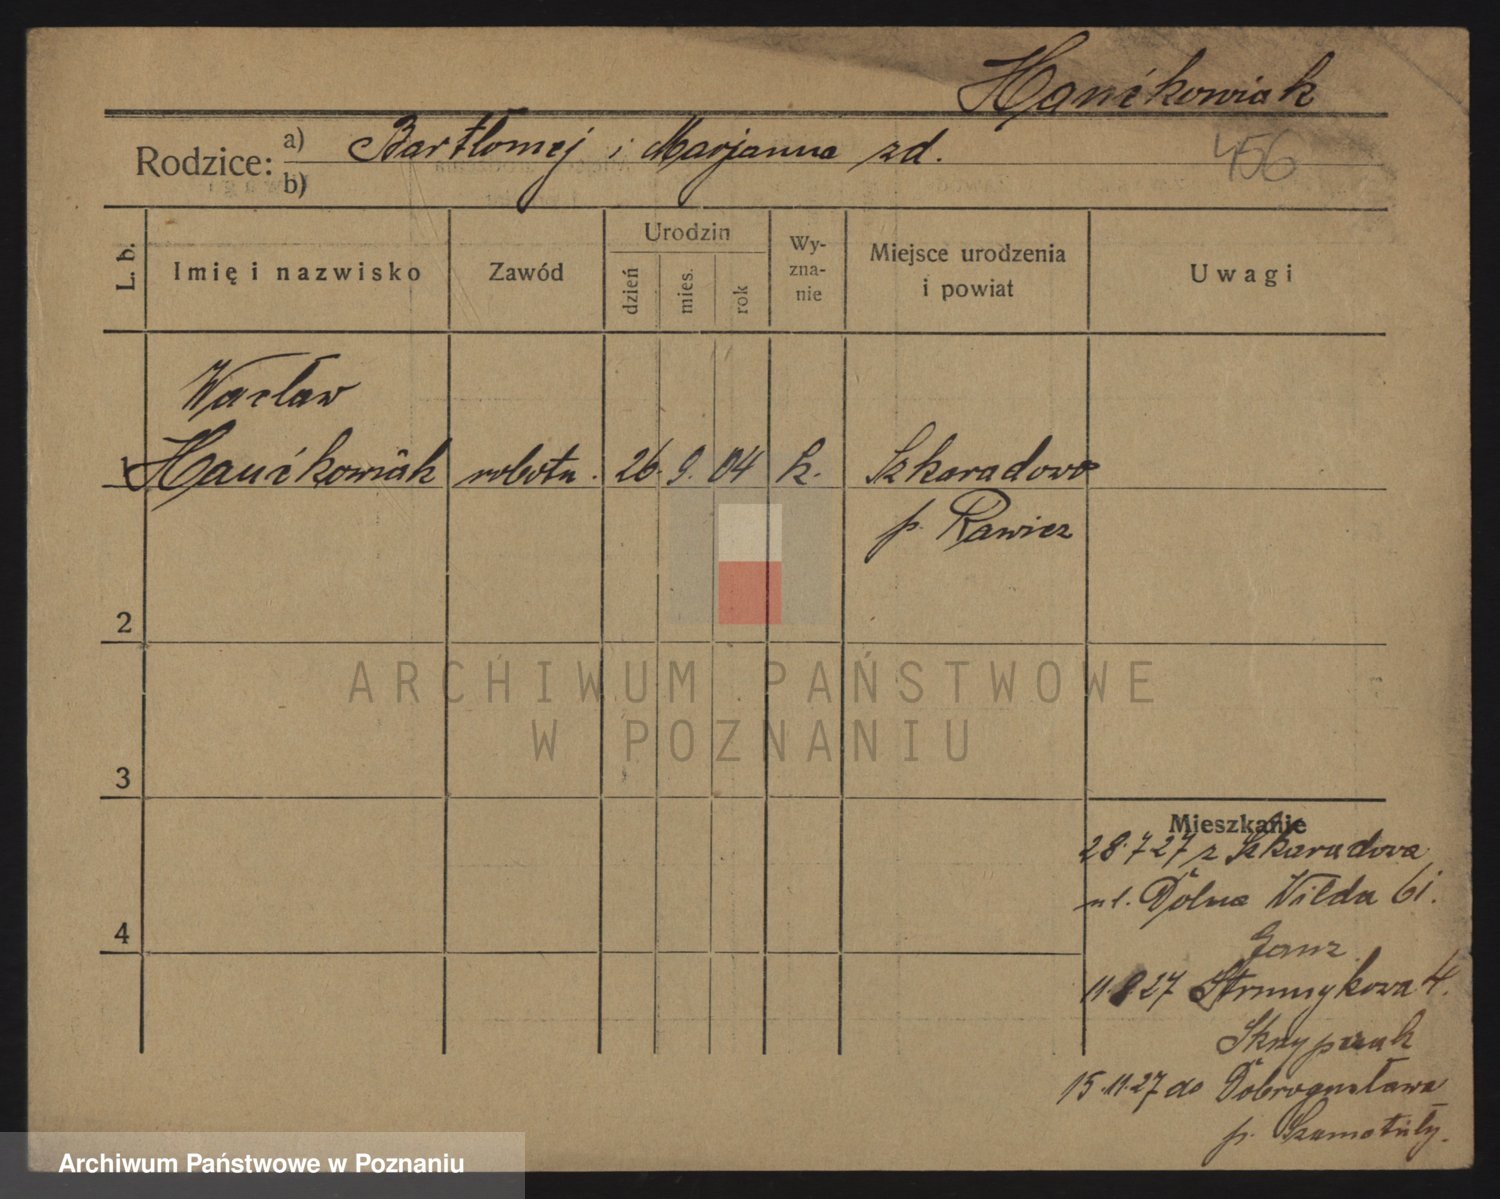 Hanikowiak
456
Rodzice: a) Bartłomej i Marjanna zd.
b)
L. b.
Imię i nazwisko
Zawód
Urodzin
dzień
mies.
rok
Wy-
zna-
nie
Miejsce urodzenia
i powiat
Uwagi
Wacław
1 Hanikowiak robotn. 26. 9. 04 k. Szkaradowo
p. Rawicz
2
3
4
Mieszkanie
28.7.27 z Szkaradowa
ul. Dolna Wilda 61.
Ganz
11.8.27 Strumykowa 4.
Skrypczak
15.11.27 do Dobrogostowa
p. Szamotuły.
ARCHIWUM PAŃSTWOWE
W POZNANIU
Archiwum Państwowe w Poznaniu